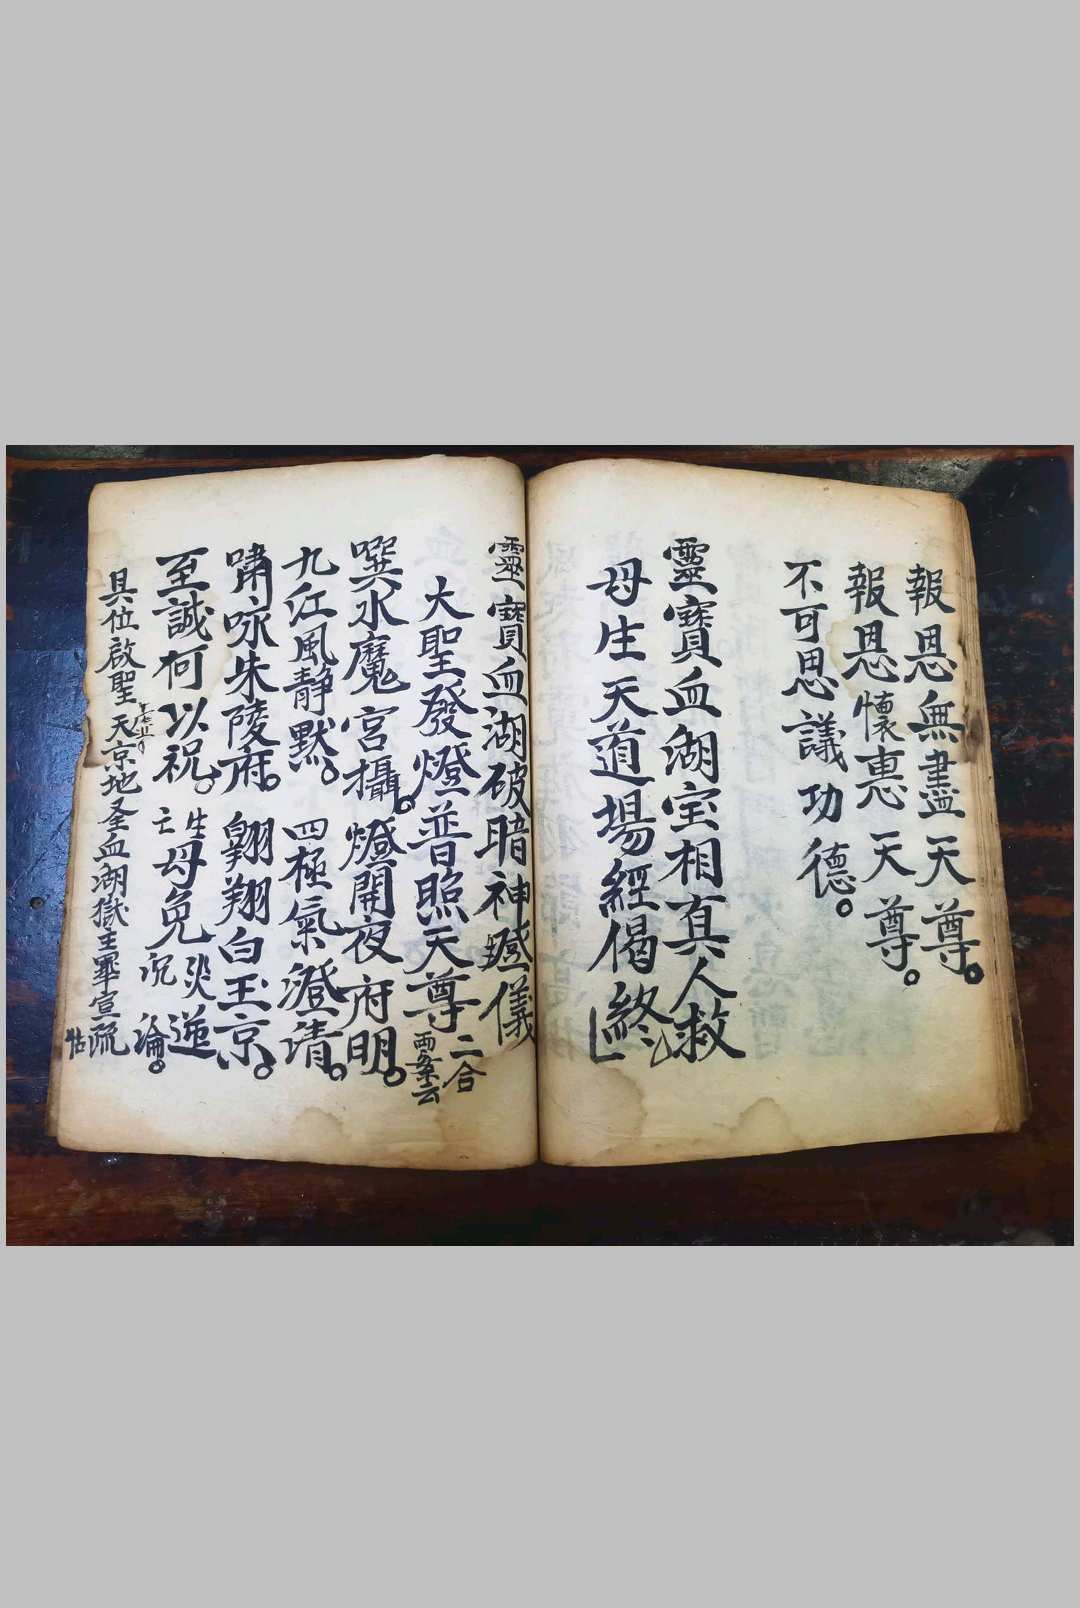 報恩無盡天尊。
報恩懷惠天尊。
不可思議功德。
靈寶血湖宝相真人救
母生天道場經偈終
靈寶血湖破暗神燈儀
大聖發燈普照天尊 二合 兩案云
噀水魔宮攝。燈開夜府明。
九江風静默。四極氣澄清。
嘯咏朱陵府。翱翔白玉京。
至誠何以祝。生亡母免災沉逆淪。
具位啟聖 天京地圣血湖獄主畢宣疏